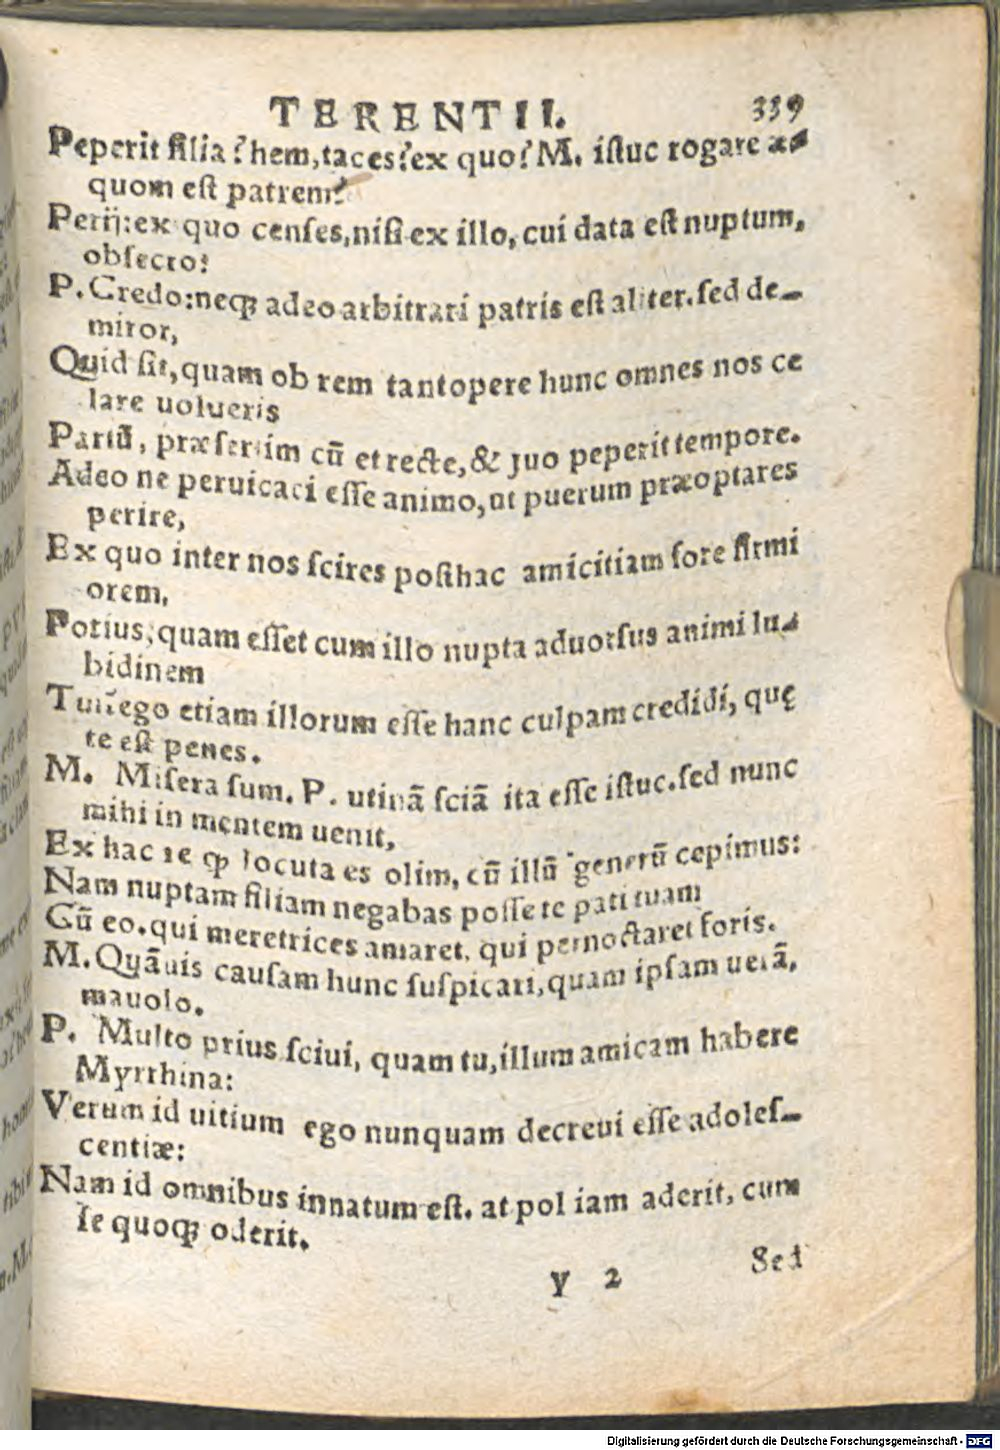 TERENTII. 339
Peperit filia? hem, taces? ex quo? M. iſtuc rogare æ⸗
quom eſt patrem?
Perij: ex quo cenſes, niſi ex illo, cui data eſt nuptum,
obſecro?
P. Credo: neqꝫ adeo arbitrari patris eſt aliter. ſed de⸗
miror,
Quid ſit, quam ob rem tantopere hunc omnes nos ce
lare uolueris
Partū, præſertim cū et recte, & ſuo peperit tempore.
Adeo ne peruicaci eſſe animo, ut puerum præoptares
perire,
Ex quo inter nos ſcires poſthac amicitiam fore firmi
orem,
Potius, quam eſſet cum illo nupta aduorſus animi lu⸗
bidinem
Tui? ego etiam illorum eſſe hanc culpam credidi, quę
te eſt penes.
M. Miſera ſum. P. utinā ſciā ita eſſe iſtuc. ſed nunc
mihi in mentem uenit,
Ex hac re ꝙ locuta es olim, cū illū generū cepimus:
Nam nuptam filiam negabas poſſe te pati tuam
Cū eo. qui meretrices amaret, qui pernoctaret foris.
M. Quāuis cauſam hunc ſuſpicari, quam ipſam uerā,
mauolo.
P. Multo prius ſciui, quam tu, illum amicam habere
Myrrhina:
Verum id uitium ego nunquam decreui eſſe adoleſ⸗
centiæ:
Nam id omnibus innatum eſt. at pol iam aderit, cum
ſe quoqꝫ oderit.
y 2 Sed
Digitalisierung gefördert durch die Deutsche Forschungsgemeinschaft - DFG